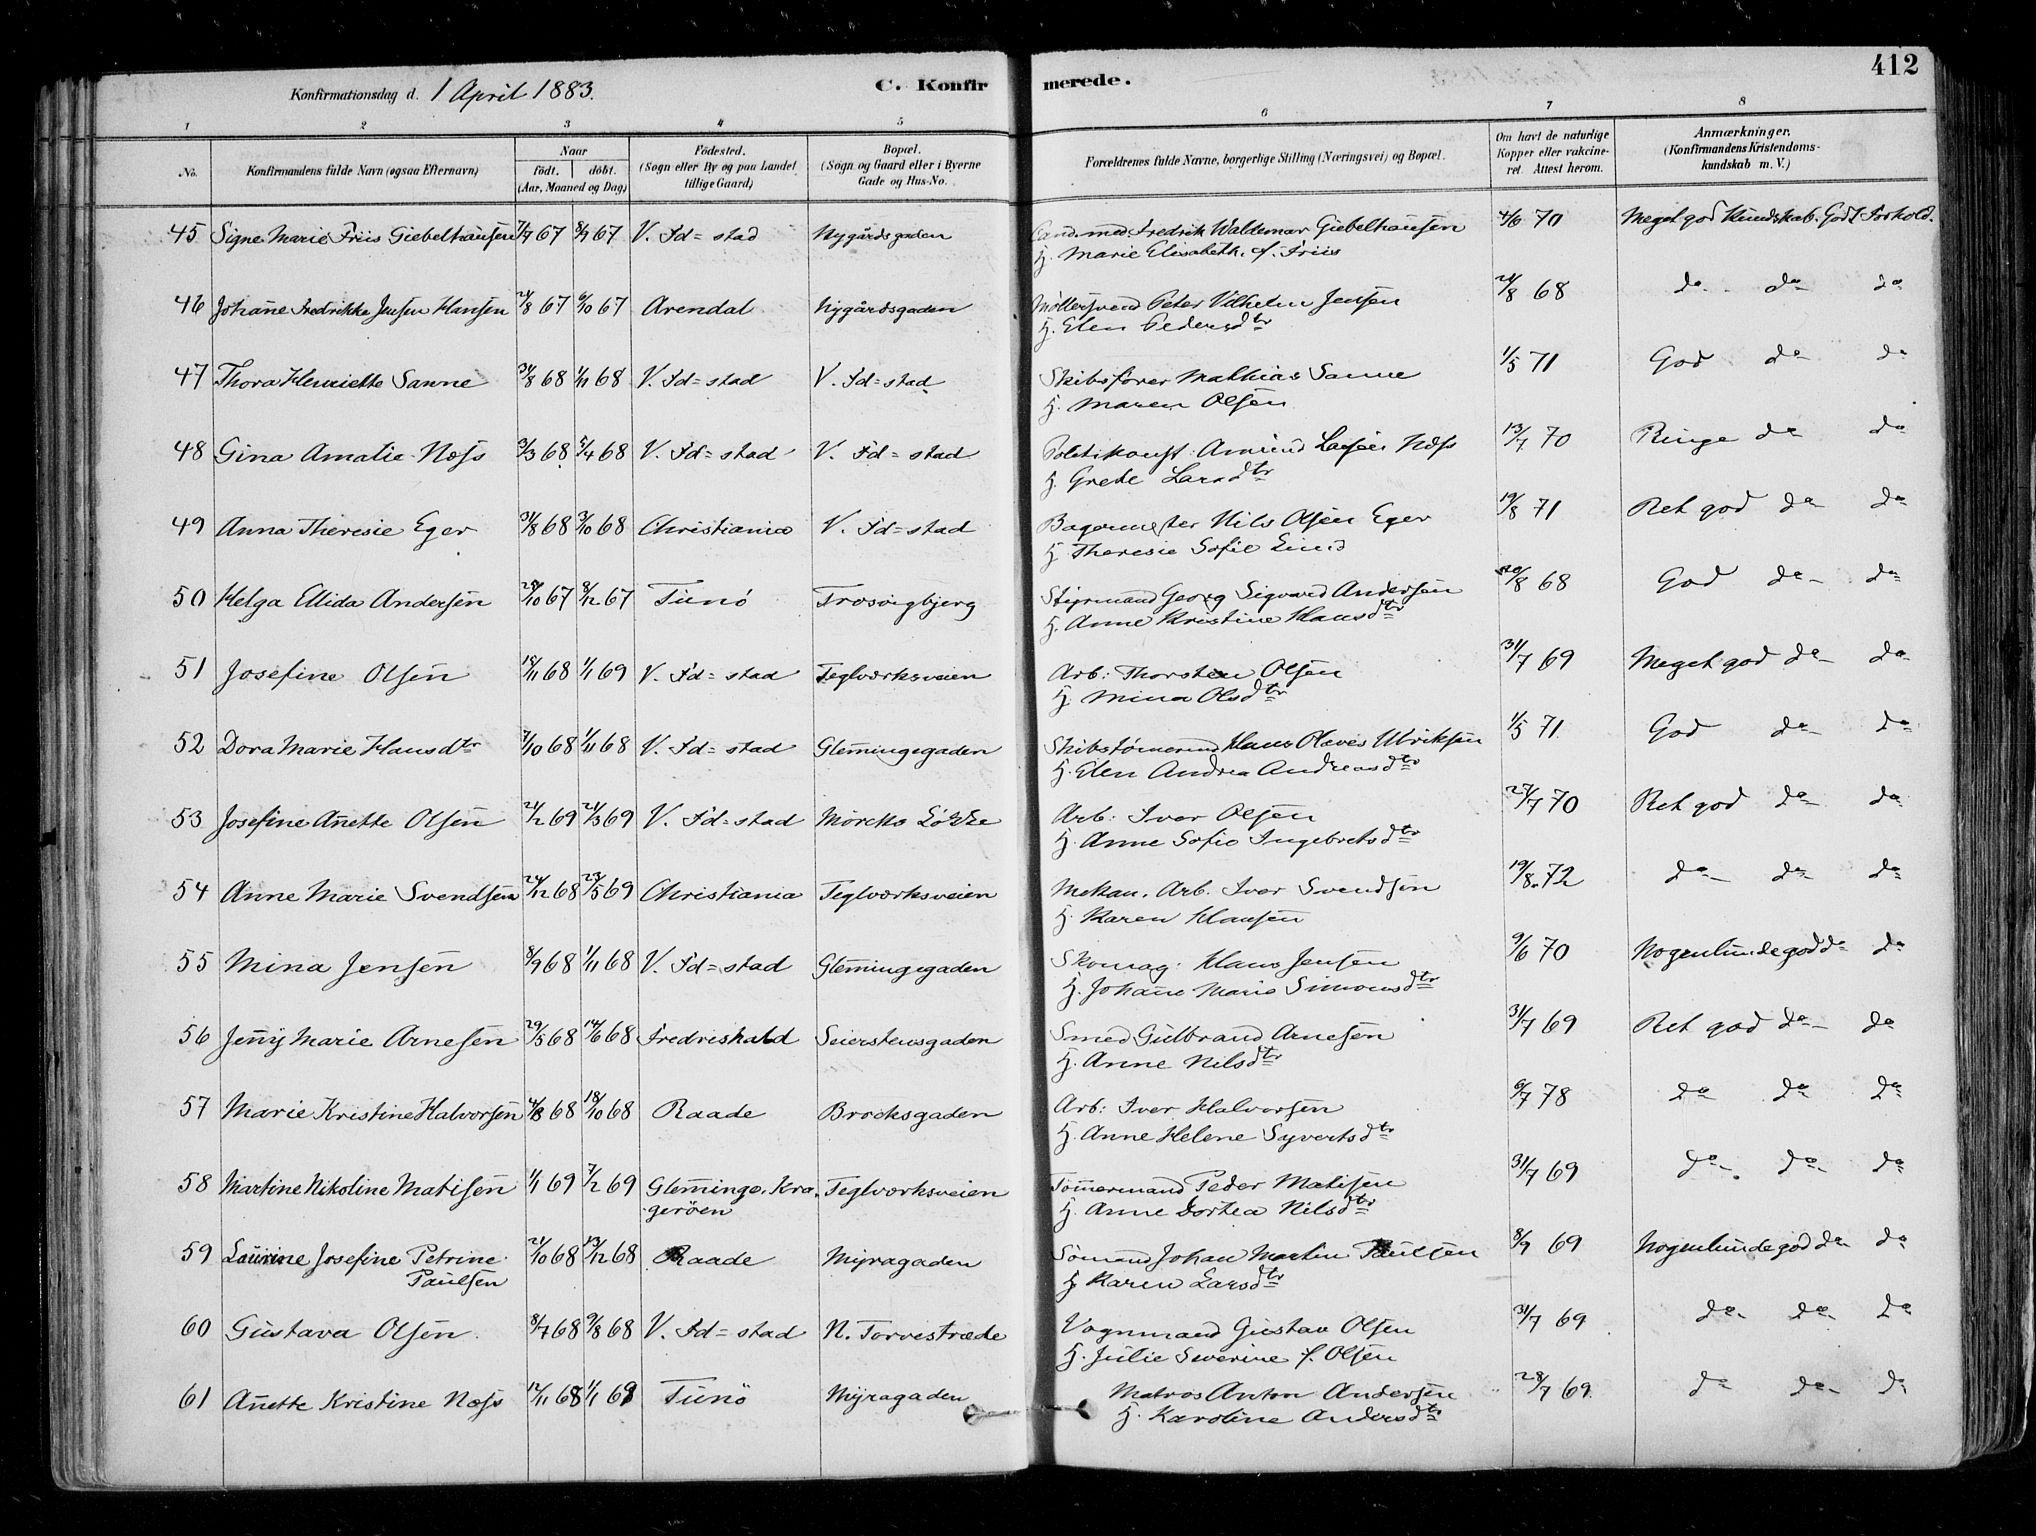 412
Konfirmationsdag d. 1 April 1883. C. Konfirmerede.
1 2 3 4 5 6 7 8
No. | Konfirmandens fulde Navn (ogsaa Efternavn) | Naar født. døbt. (Aar, Maaned og Dag) | Fødested. (Sogn eller By og paa Landet tillige Gaard) | Bopæl. (Sogn og Gaard eller i Byerne Gade og Hus-No. | Forældrenes fulde Navne, borgerlige Stilling (Næringsvei) og Bopæl. | Om havt de naturlige Kopper eller vakcineret. Attest herom. | Anmærkninger. (Konfirmandens Kristendomskundskab m. V.)
45 Signe Marie Friis Giebelhausen 7/7 67 8/9 67 V. Fd=stad Nygårdsgaden Cand. med. Fredrik Waldemar Giebelhausen 4/6 70 Meget god Kundskab. Godt Forhold.
H. Marie Elisabeth. f. Friis
46 Johanne Fredrikke Jensen Hansen 24/8 67 6/10 67 Arendal Nygårdsgaden Møllersvend Peter Vilhelm Jensen 21/8 68 do do do
H. Elen Pedersdtr
47 Thora Henriette Sanne 31/8 68 1/11 68 V. Fd=stad V. Fd=stad Skibsfører Mathias Sanne 1/5 71 God do do
H. Maren Olsen
48 Gina Amalie Næss 3/3 68 5/4 68 V. Fd=stad V. Fd=stad Politikonst. Amund Larsen Næss 13/7 70 Ringe do do
H. Grete Larsdtr
49 Anna Theresie Eger 31/8 68 3/10 68 Christiania V. Fd=stad Bagermester Nils Olsen Eger 19/8 71 Ret god do do
H. Theresie Sofie
50 Helga Elida Andersen 28/10 67 8/12 67 Tunø Trosvigbjerg Styrmand Georg Sigvard Andersen /8 68 God do do
H. Anne Kristine Hansdtr
51 Josefine Olsen 18/11 68 1/1 69 V. Fd=stad Teglværksveien Arb: Thorsten Olsen 31/7 69 Meget god do do
H. Mina Olsdtr
52 Dora Marie Hansdtr 7/10 68 1/11 68 V. Fd=stad Glemmingegaden Skibstømmermd Hans Olaves Ulriksen 1/5 71 God do do
H. Elen Andrea Andreasdtr
53 Josefine Anette Olsen 21/2 69 21/3 69 V. Fd=stad Mørcks Løkke Arb: Iver Olsen 27/7 70 Ret god do do
H. Anne Sofie Ingebretsdtr
54 Anne Marie Svendsen 24/12 68 23/5 69 Christiania Teglværksveien Mekan. Arb. Iver Svendsen 19/8 72 do do do
H. Karen Hansen
55 Mina Jensen 8/9 68 1/11 68 V. Fd=stad Glemmingegaden Skomag: Hans Jensen 9/6 70 Nogenlunde god do do
H. Johane Marie Simonsdtr
56 Jenny Marie Arnesen 29/5 68 14/6 68 Fredrikshald Seierstensgaden Smed Gulbrand Arnesen 31/7 69 Ret god do do
H. Anne Nilsdtr
57 Marie Kristine Halvorsen 4/8 68 18/10 68 Raade Brocksgaden Arb: Iver Halvorsen 6/7 78 do do do
H. Anne Helene Syvertsdtr
58 Martine Nikoline Matisen 1/1 69 7/2 69 Glemminge. Kragerøen Teglværksveien Tømmermand Peder Matisen 31/7 69 do do do
H. Anne Dortea Nilsdtr
59 Laurine Josefine Petrine Paulsen 21/10 68 13/12 68 Raade Myragaden Sømand Johan Martin Paulsen 8/9 69 Nogenlunde god do do
H. Karen Larsdtr
60 Gustava Olsen 8/7 68 9/8 68 V. Fd=stad N. Torvestræde Vognmand Gustav Olsen 31/7 69 do do do
H. Julie Severine f. Olsen
61 Anette Kristine Næss 12/11 68 1/1 69 Tunø Myragaden Matros Anton Andersen 28/7 69. do do do
H. Karoline Andersdtr